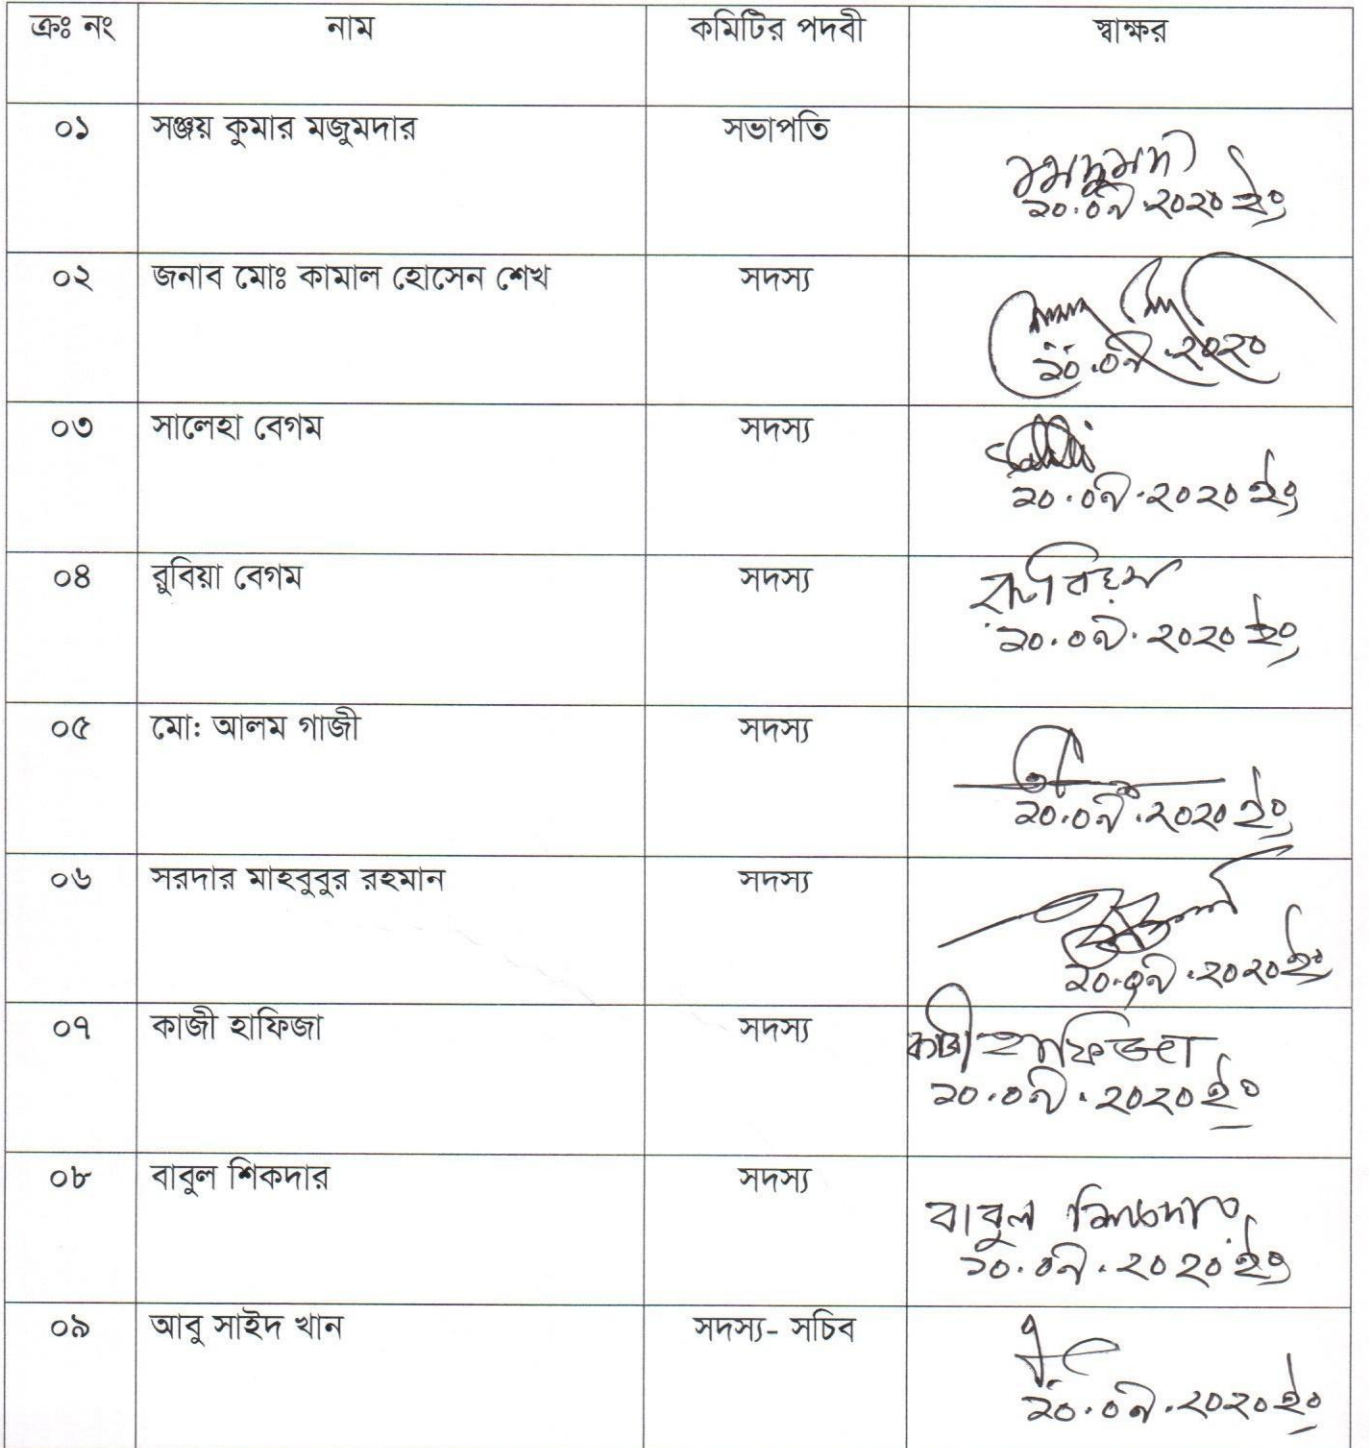 ক্রঃ নং নাম কমিটির পদবী স্বাক্ষর
০১ সঞ্জয় কুমার মজুমদার সভাপতি
২০.০৭.২০২০ ইং
০২ জনাব মোঃ কামাল হোসেন শেখ সদস্য
২০.০৭.২০২০
০৩ সালেহা বেগম সদস্য
২০.০৭.২০২০ ইং
০৪ রুবিয়া বেগম সদস্য
২০.০৭.২০২০ ইং
০৫ মো: আলম গাজী সদস্য
২০.০৭.২০২০ ইং
০৬ সরদার মাহবুবুর রহমান সদস্য
২০.০৭.২০২০ ইং
০৭ কাজী হাফিজা সদস্য
কাজী হাফিজা
২০.০৭.২০২০ ইং
০৮ বাবুল শিকদার সদস্য
বাবুল শিকদার
২০.০৭.২০২০ ইং
০৯ আবু সাইদ খান সদস্য- সচিব
২০.০৭.২০২০ ইং